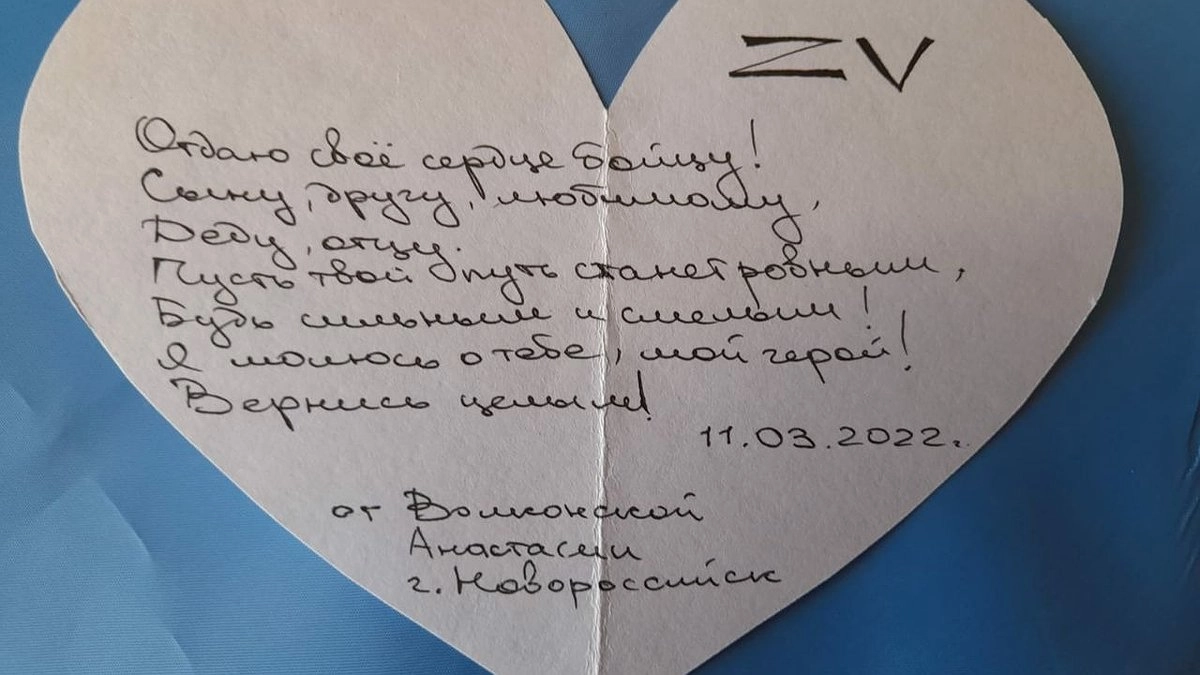 ZV
Отдаю своё сердце бойцу!
Сыну, другу, любимому,
Деду, отцу.
Пусть твой путь станет ровным,
Будь сильным и смелым!
Я молюсь о тебе, мой герой!
Вернись целым!
11.03.2022г.
от Волконской
Анастасии
г. Новороссийск